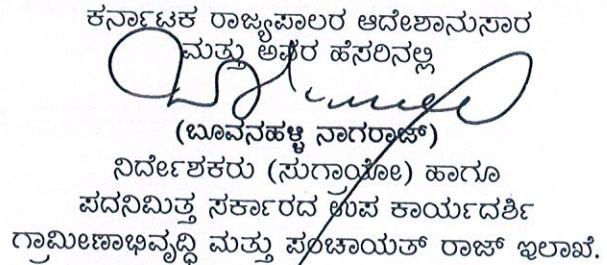 ಕರ್ನಾಟಕ ರಾಜ್ಯಪಾಲರ ಆದೇಶಾನುಸಾರ
ಮತ್ತು ಅವರ ಹೆಸರಿನಲ್ಲಿ
(ಬೂವನಹಳ್ಳಿ ನಾಗರಾಜ್)
ನಿರ್ದೇಶಕರು (ಸುಗ್ರಾಯೋ) ಹಾಗೂ
ಪದನಿಮಿತ್ತ ಸರ್ಕಾರದ ಉಪ ಕಾರ್ಯದರ್ಶಿ
ಗ್ರಾಮೀಣಾಭಿವೃದ್ಧಿ ಮತ್ತು ಪಂಚಾಯತ್ ರಾಜ್ ಇಲಾಖೆ.